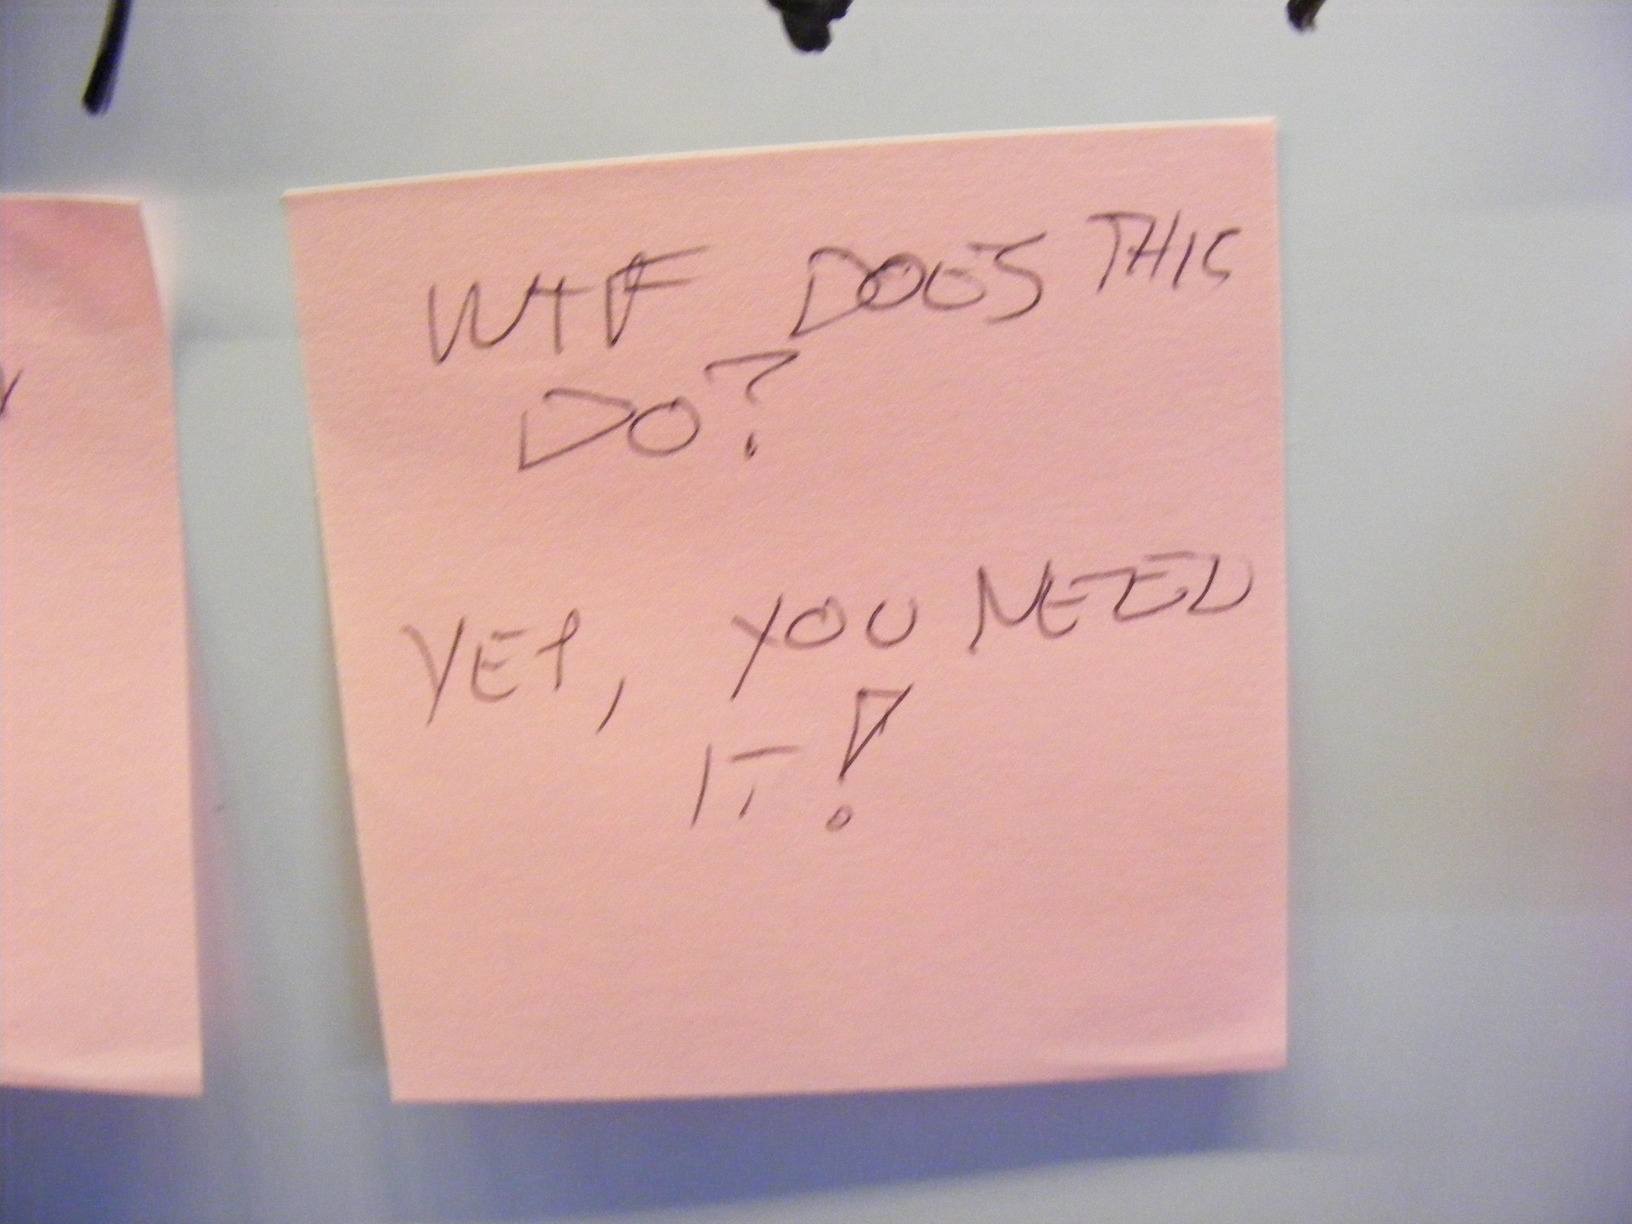 WTF DOES THIS
DO?
YET, YOU NEED
IT!